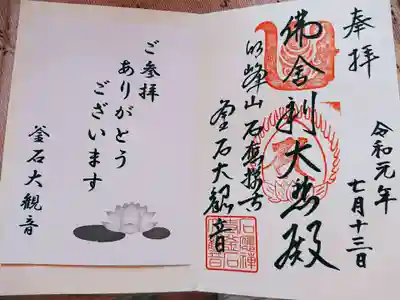 奉拝
令和元年
七月十三日
佛舎利大悲殿
明峰山 石應禅寺
釜石大観音
ご参拝
ありがとう
ございます
釜石大観音